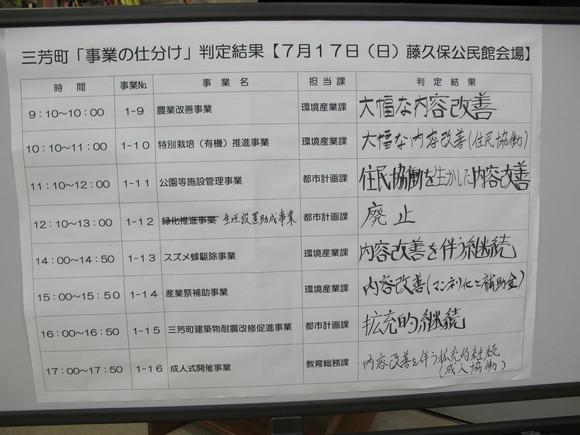 三芳町「事業の仕分け」判定結果【7月17日（日）藤久保公民館会場】
時間 事業No. 事業名 担当課 判定結果
9:10～10:00 1-9 農業改善事業 環境産業課 大幅な内容改善
10:10～11:00 1-10 特別栽培（有機）推進事業 環境産業課 大幅な内容改善(住民協働)
11:10～12:00 1-11 公園等施設管理事業 都市計画課 住民協働を生かした内容改善
12:10～13:00 1-12 緑化推進事業 生垣設置助成事業 都市計画課 廃止
14:00～14:50 1-13 スズメ蜂駆除事業 環境産業課 内容改善を伴う継続
15:00～15:50 1-14 産業祭補助事業 環境産業課 内容改善(マンネリ化と補助金)
16:00～16:50 1-15 三芳町建築物耐震改修促進事業 都市計画課 拡充的継続
17:00～17:50 1-16 成人式開催事業 教育総務課 内容改善を伴う拡充的継続
(成人協働)